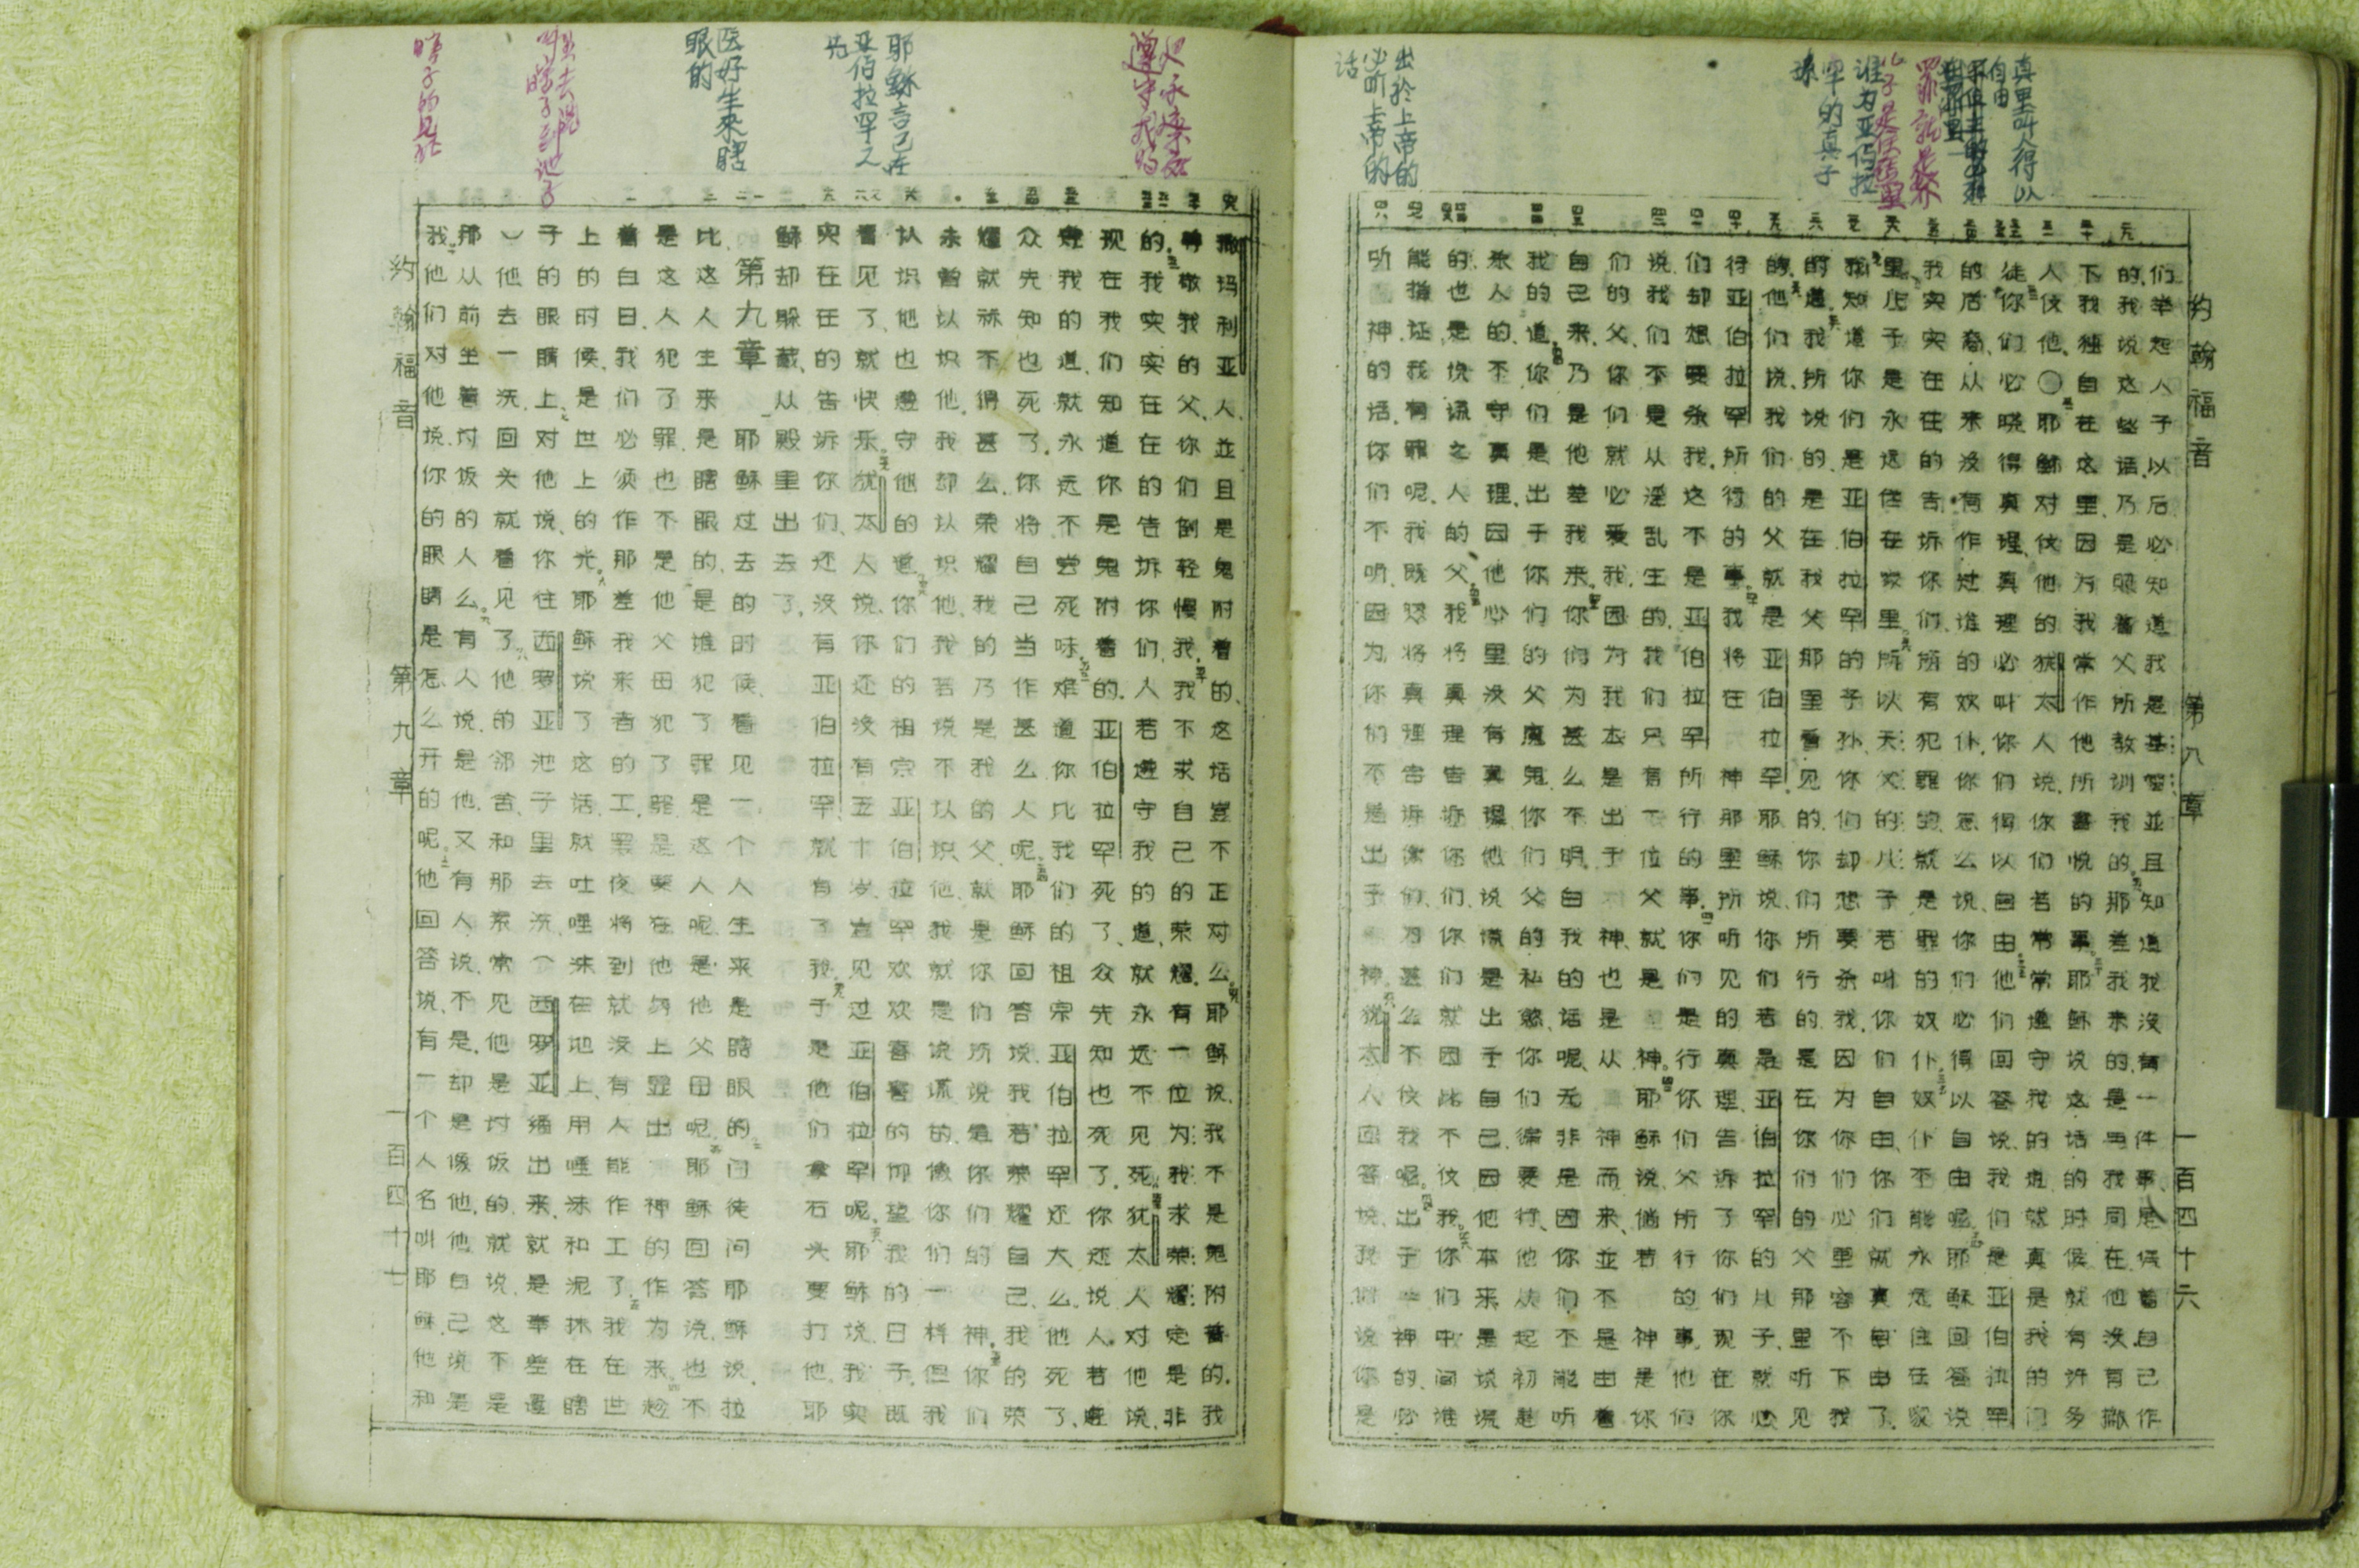 真里叫人得以自由
罪就是罪
谁为亚伯拉罕的真子
出於上帝的必听上帝的话
约翰福音 第八章 一百四十六
们举起人子以后必知道我是基督並且知道我没有一件事、是凭着自己作
的我说这些话、乃是照着父所教训我的那差我来的是与我同在他没有撇
下我独自在这里、因为我常作他所喜悦的事耶稣说这话的时候就有许多
人信他、〇耶稣对信他的犹太人说、你们若常常遵守我的道就真是我的门
徒你们必晓得真理、真理必叫你们得以自由他们回答说我们是亚伯拉罕
的后裔、从来没有作过谁的奴仆、你怎么说、你们必得以自由呢耶稣回答说
我实实在在的告诉你们、所有犯罪的就是罪的奴仆奴仆不能永远住在家
里儿子是永远住在家里所以天父的儿子若叫你们自由、你们就真自由了
我知道你们是亚伯拉罕的子孙、你们却想要杀我、因为你们心里容不下我
的道我所说的、是在我父那里看见的、你们所行的、是在你们的父那里听见
的他们说、我们的父就是亚伯拉罕、耶稣说、你们若是亚伯拉罕的儿子、就必
行亚伯拉罕所行的事我将在神那里所听见的真理、告诉了你们现在你
们却想要杀我、这不是亚伯拉罕所行的事、你们是行你们父所行的事、他
们说、我们不是从淫乱生的、我们只有一位父就是神耶稣说、倘若神是你
们的父、你们就必爱我、因为我本是出于神也是从神而来、並不是由着
自己来、乃是他差我来你们为甚么不明白我的话呢、无非是因你们不能听
我的道、你们是出于你们的父魔鬼、你们父的私慾、你们偏要行、他从起初
杀人的、不守真理、因他心里没有真理、他说谎是出于自己、因他本来是说谎
的、也是说谎之人的父、我将真理告诉你们、你们就因此不信我你们中间谁
能指证我有罪呢、我既然将真理告诉你们、为甚么不信我呢、出于神的必
听神的话、你们不听、因为你们不是出于神犹太人回答说、我们说你是
也永樂無
遵守我的
耶稣言己在亚伯拉罕之先
医好生來瞎眼的
瞎子的見証
撒玛利亚人、並且是鬼附着的、这话岂不正对么耶稣说、我不是鬼附着的、我
尊敬我的父、你们倒轻慢我、我不求自己的荣耀、有一位为我求荣耀定是非
的、我实实在在的告诉你们、人若遵守我的道、就永远不见死犹太人对他说、
现在我们知道你是鬼附着的、亚伯拉罕死了、众先知也死了、你还说人若遵
守我的道、就永远不尝死味难道你比我们的祖宗亚伯拉罕还大么、他死了、
众先知也死了、你将自己当作甚么人呢、耶稣回答说、我若荣耀自己、我的荣
耀就祘不得甚么、荣耀我的乃是我的父、就是你们所说是你们的神、你们
未曾认识他、我却认识他、我若说不认识他、我就是说谎的像你们一样但我
认识他、也遵守他的道你们的祖宗亚伯拉罕欢欢喜喜的仰望我的日子、既
看见了、就快乐犹太人说、你还没有五十岁岂见过亚伯拉罕呢、耶稣说、我实
实在在的告诉你们、还没有亚伯拉罕就有了我于是他们拿石头要打他、耶
稣却躲藏、从殿里出去了
第九章 一耶稣过去的时候、看见一个人生来是瞎眼的门徒问耶稣说、拉
比这人生来是瞎眼的、是谁犯了罪是这人呢、是他父母呢耶稣回答说、也不
是这人犯了罪、也不是他父母犯了罪是要在他身上显出神的作为来趁
着白日、我们必须作那差我来者的工、黑夜将到就没有人能作工了我在世
上的时候、是世上的光耶稣说了这话、就吐唾沫在地上、用唾沫和泥抹在瞎
子的眼睛上、对他说、你往西罗亚池子里去洗、（西罗亚繙出来、就是奉差遣
）他去一洗、回头就看见了他的邻舍和那素常见他是讨饭的、就说这不是
那从前坐着讨饭的人么有人说、是他、又有人说、不是、却是像他、他自己说、是
我他们对他说、你的眼睛是怎么开的呢他回答说、有一个人名叫耶稣、他和
约翰福音 第九章 一百四十七